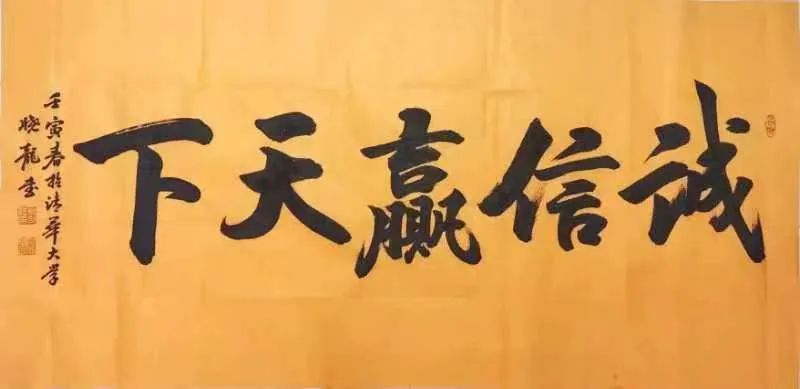 诚信赢天下
壬寅春於清華大学
晓龍書